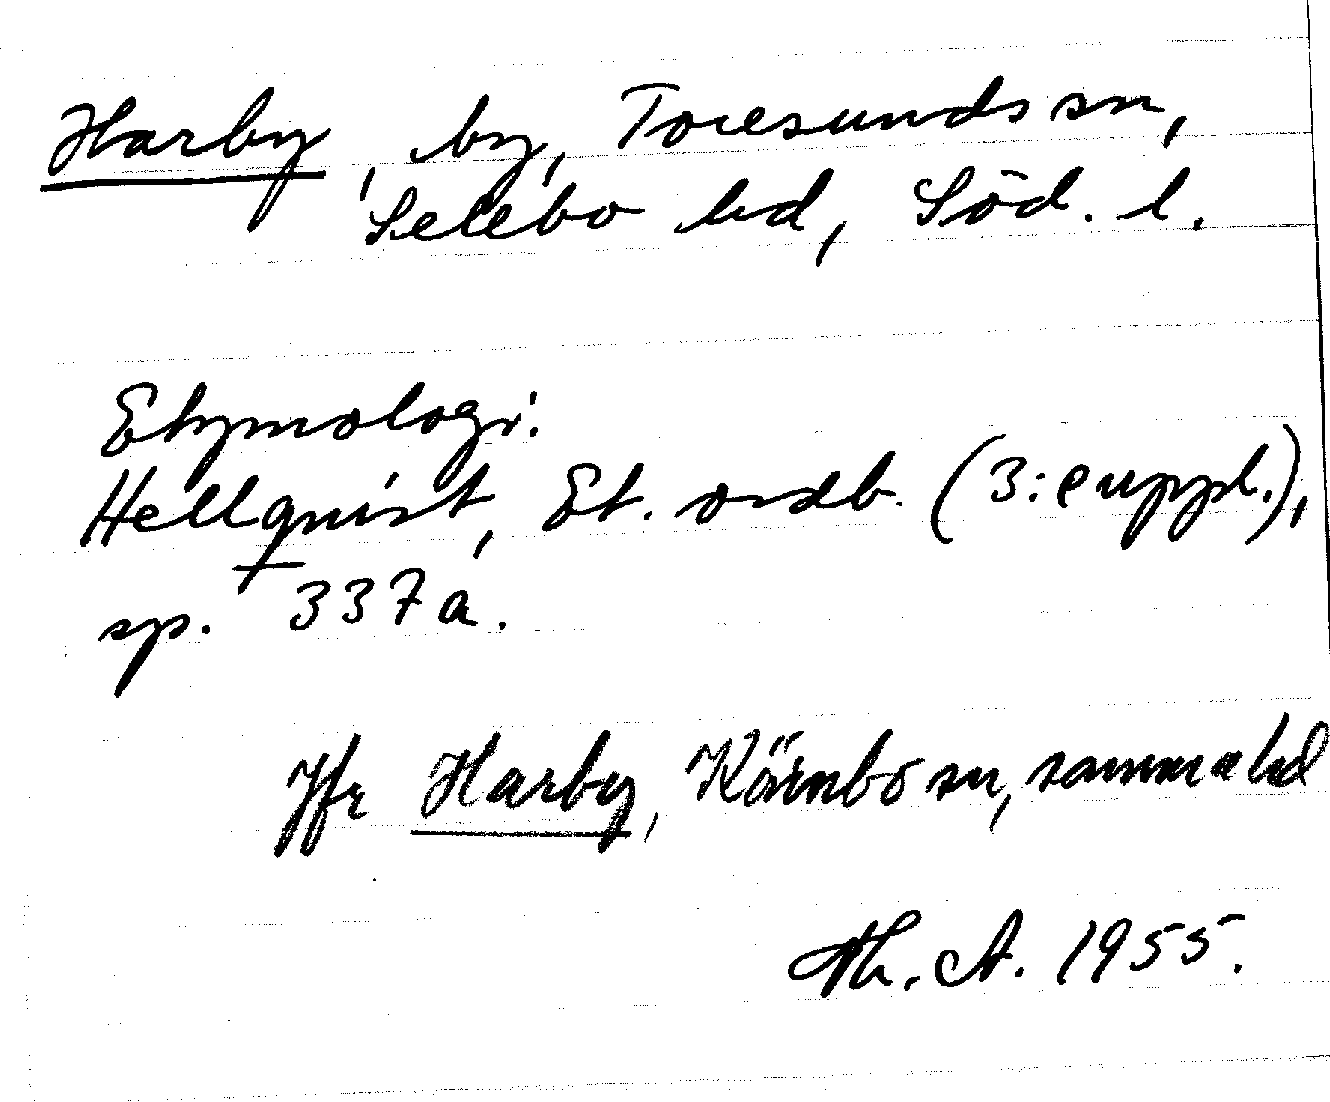 Harby, by, Toresunds sn,
Selebo hd, Söd. l.
Etymologi:
Hellquist, Et. ordb. (3:e uppl.),
sp. 337 a.
Jfr Harby, Kärnbo sn, samma hd
Th. A. 1955.